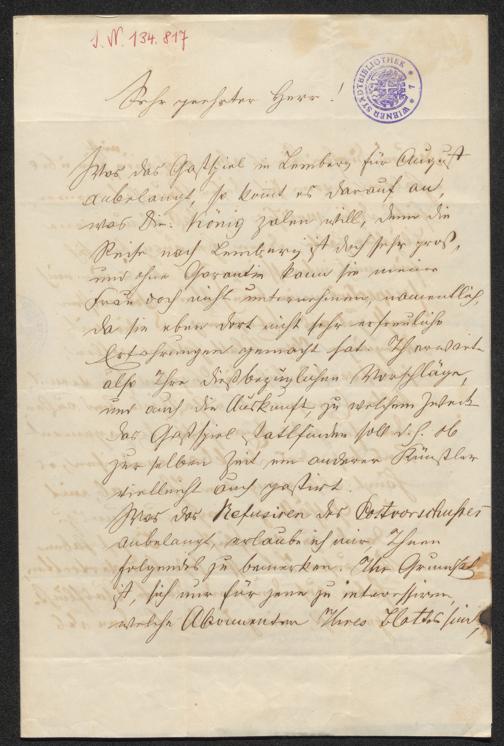 J. N. 134.817
WIENER STADTBIBLIOTHEK
Sehr geehrter Herr!
Was das Gastspiel in Lemberg für August
anbelangt, so kömt es darauf an,
was Dir. König zalen will, denn die
Reise nach Lemberg ist doch sehr gros,
und ohne Garantie kann sie meine
Frau doch nicht unternehmen, namentlich,
da sie eben dort nicht sehr erfreuliche
Erfahrungen gemacht hat. Ich erwarte
also Ihre dießbezüglichen Vorschläge,
und auch die Auskunft, zu welchem Zweck
das Gastspiel stattfinden soll d. h. ob
zur selben Zeit ein anderer Künstler
vielleicht auch gastirt.
Was das Refusiren des Postvorschußes
anbelangt, erlaube ich mir Ihnen
folgendes zu bemerken. Ihr Grundsatz
ist, sich nur für jene zu interessiren,
welche Abonnenten Ihres Blattes sind,